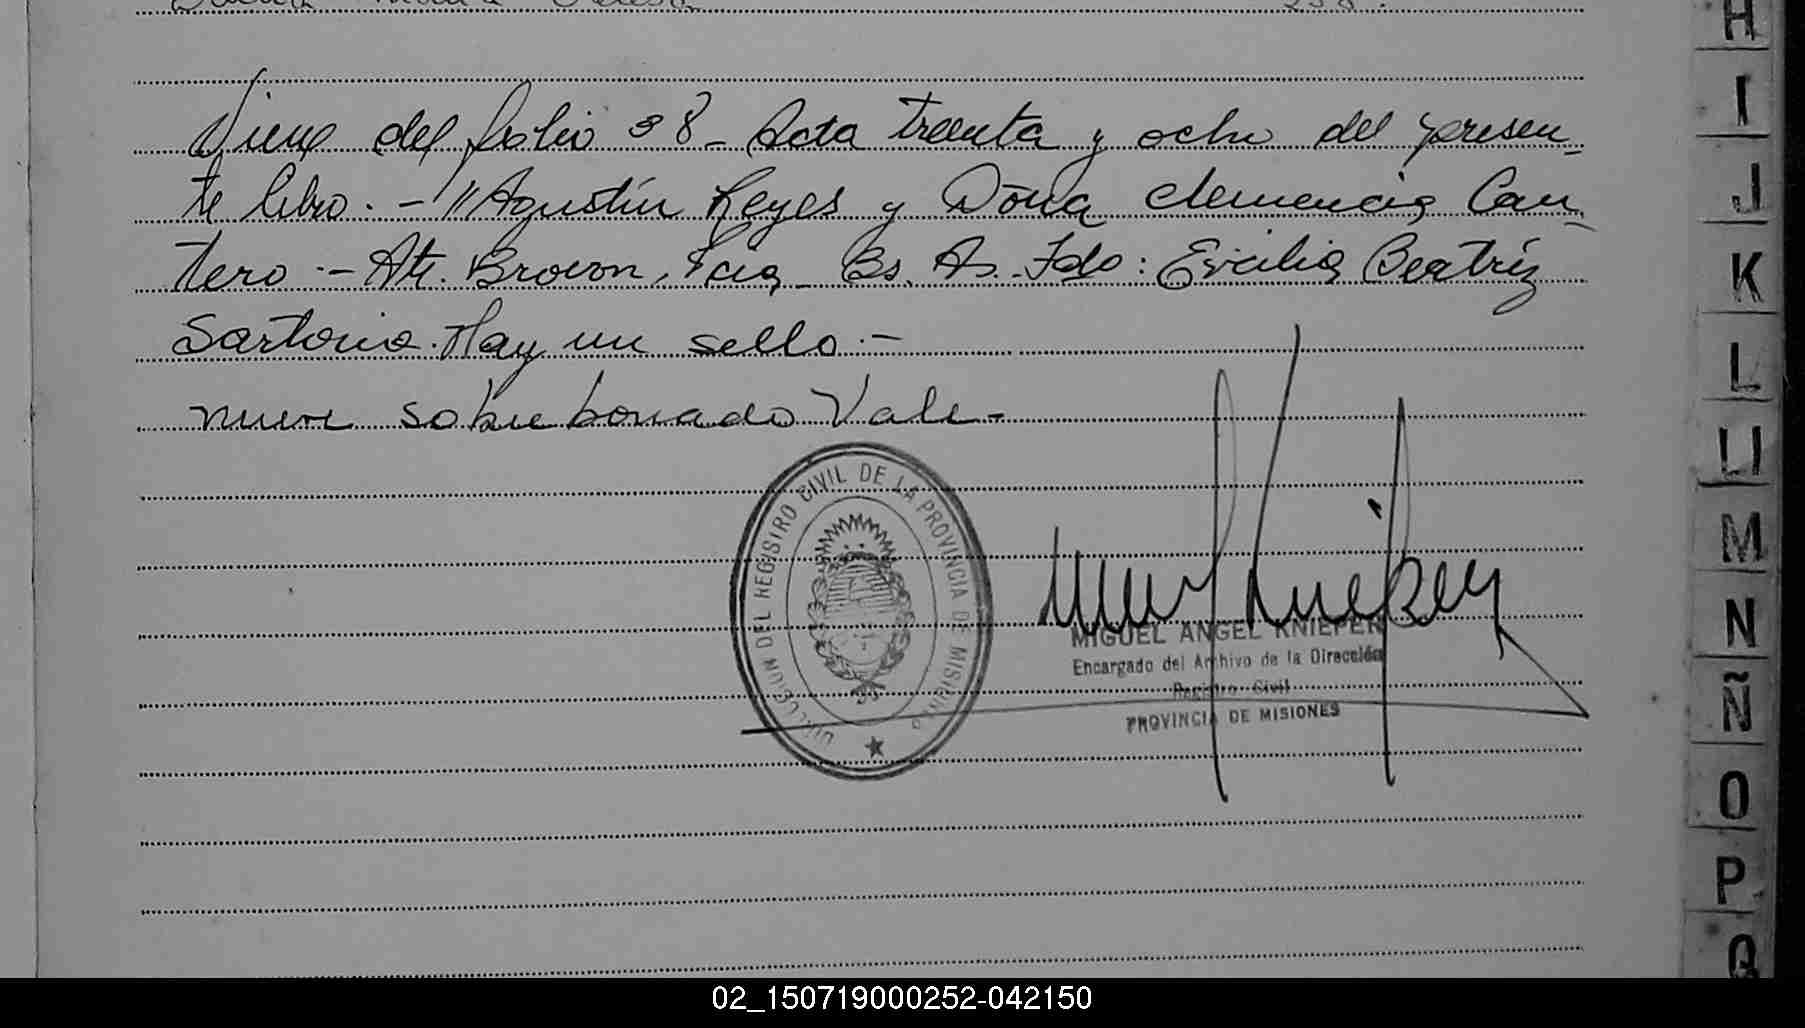 Viene del folio 38 - Acta treinta y ocho del presen-
te libro. - "Agustín Reyes y Doña Clemencia Can-
tero - Ate. Brown, Pcia. Bs. As. Fdo: Ercilia Beatríz
Sartorio. Hay un sello. -
nueve sobreborrado Vale -
DIRECCION DEL REGISTRO CIVIL DE LA PROVINCIA DE MISIONES
MIGUEL ANGEL KNIEPER
Encargado del Archivo de la Dirección
Registro Civil
PROVINCIA DE MISIONES
H
I
J
K
L
LL
M
N
Ñ
O
P
Q
02_150719000252-042150